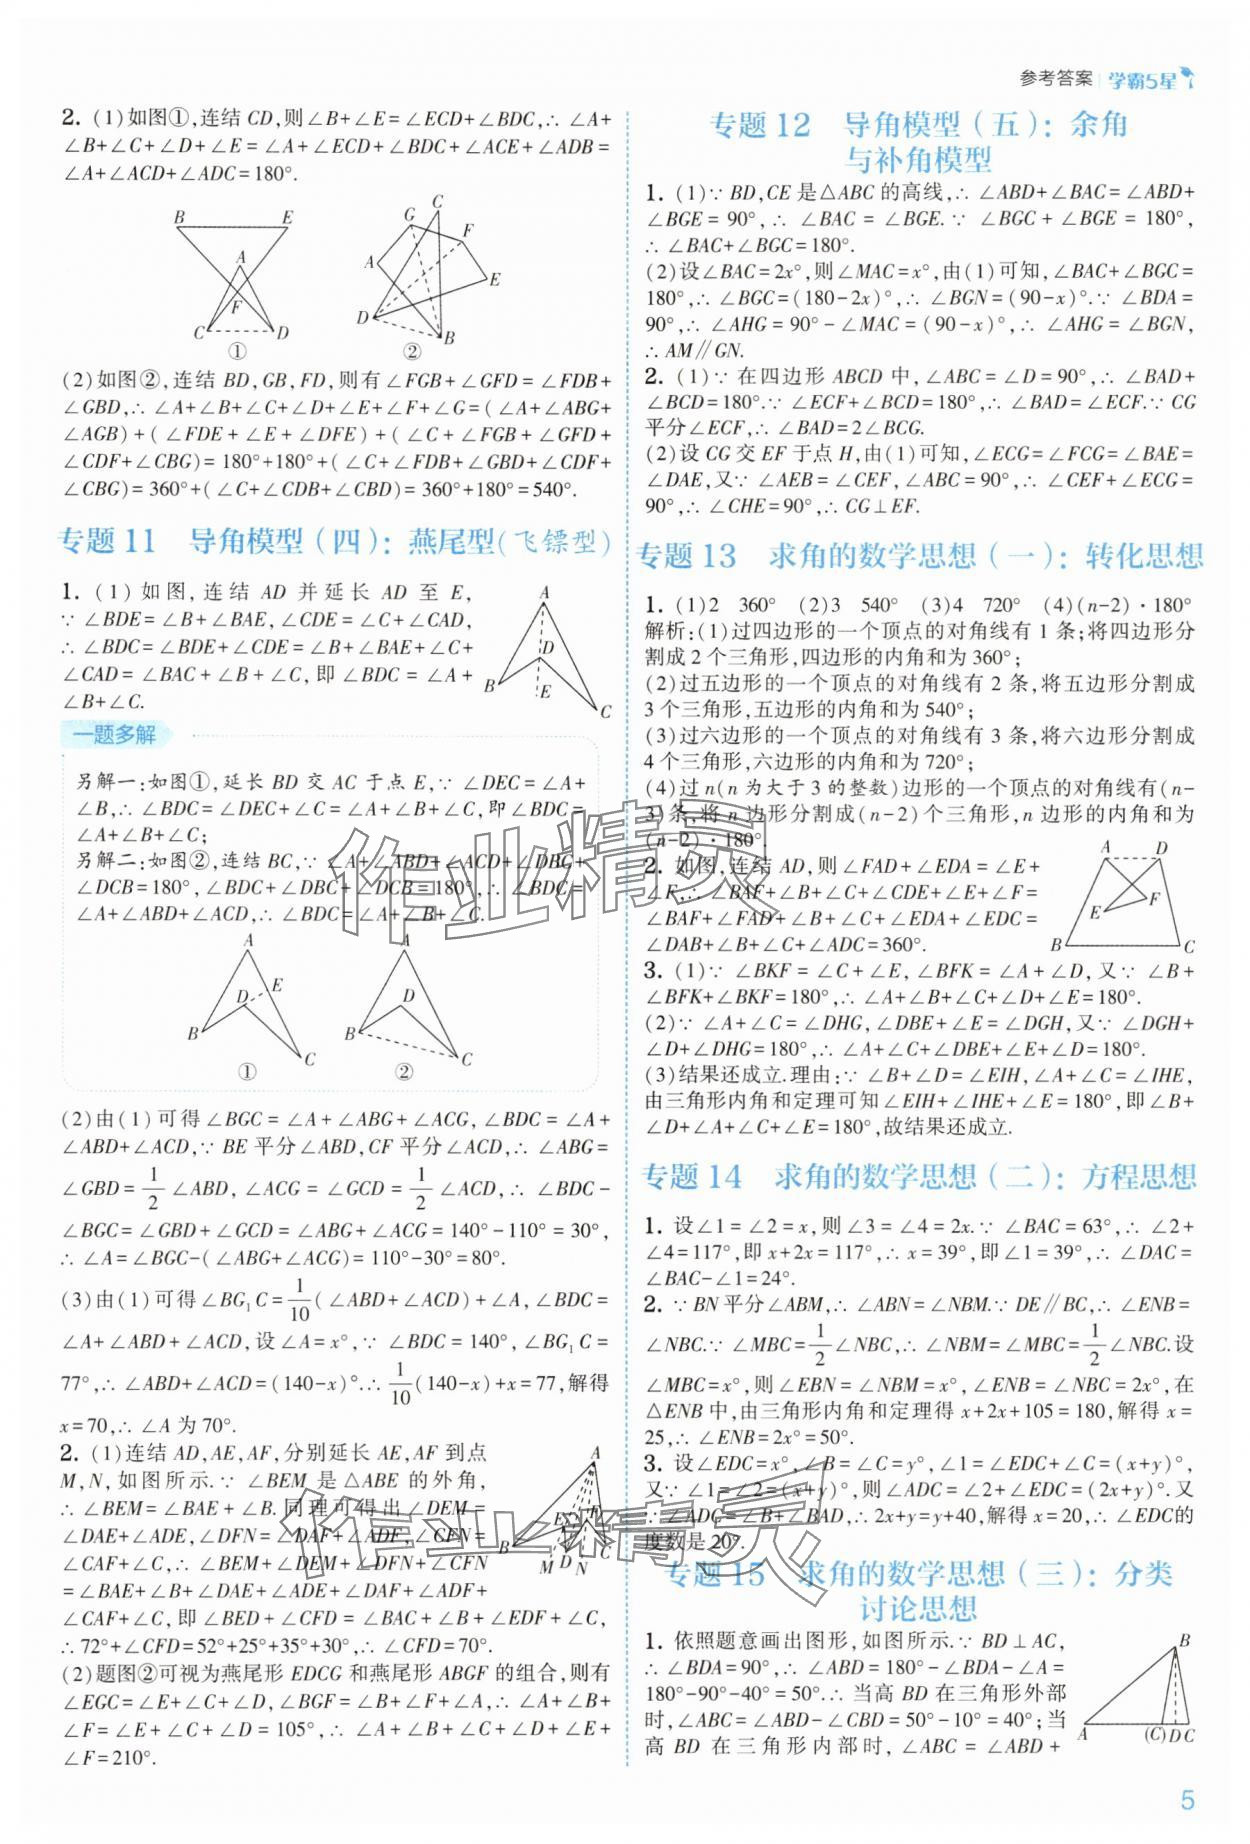 参考答案 学霸5星
2. (1)如图①,连结 CD,则∠B+∠E=∠ECD+∠BDC,∴ ∠A+
∠B+∠C+∠D+∠E=∠A+∠ECD+∠BDC+∠ACE+∠ADB=
∠A+∠ACD+∠ADC=180°.
B E A F C D ①
C G F A E D B ②
(2)如图②,连结 BD,GB,FD,则有∠FGB+∠GFD=∠FDB+
∠GBD,∴ ∠A+∠B+∠C+∠D+∠E+∠F+∠G=(∠A+∠ABG+
∠AGB)+(∠FDE+∠E+∠DFE)+(∠C+∠FGB+∠GFD+
∠CDF+∠CBG)=180°+180°+(∠C+∠FDB+∠GBD+∠CDF+
∠CBG)=360°+(∠C+∠CDB+∠CBD)=360°+180°=540°.
专题 11 导角模型(四):燕尾型(飞镖型)
1. (1)如图,连结 AD 并延长 AD 至 E,
∵ ∠BDE=∠B+∠BAE,∠CDE=∠C+∠CAD,
∴ ∠BDC=∠BDE+∠CDE=∠B+∠BAE+∠C+
∠CAD=∠BAC+∠B+∠C,即∠BDC=∠A+
∠B+∠C.
A D B E C
一题多解
另解一:如图①,延长 BD 交 AC 于点 E,∵ ∠DEC=∠A+
∠B,∴ ∠BDC=∠DEC+∠C=∠A+∠B+∠C,即∠BDC=
∠A+∠B+∠C;
另解二:如图②,连结 BC,∵ ∠A+∠ABD+∠ACD+∠DBC+
∠DCB=180°,∠BDC+∠DBC+∠DCB=180°,∴ ∠BDC=
∠A+∠ABD+∠ACD,∴ ∠BDC=∠A+∠B+∠C.
A D E B C ①
A D B C ②
(2)由(1)可得∠BGC=∠A+∠ABG+∠ACG,∠BDC=∠A+
∠ABD+∠ACD,∵ BE 平分∠ABD,CF 平分∠ACD,∴ ∠ABG=
∠GBD=1/2∠ABD,∠ACG=∠GCD=1/2∠ACD,∴ ∠BDC-
∠BGC=∠GBD+∠GCD=∠ABG+∠ACG=140°-110°=30°,
∴ ∠A=∠BGC-(∠ABG+∠ACG)=110°-30°=80°.
(3)由(1)可得∠BG₁C=1/10(∠ABD+∠ACD)+∠A,∠BDC=
∠A+∠ABD+∠ACD,设∠A=x°,∵ ∠BDC=140°,∠BG₁C=
77°,∴ ∠ABD+∠ACD=(140-x)°.∴ 1/10(140-x)+x=77,解得
x=70,∴ ∠A 为 70°.
2. (1)连结 AD,AE,AF,分别延长 AE,AF 到点
M,N,如图所示.∵ ∠BEM 是△ABE 的外角,
∴ ∠BEM=∠BAE+∠B.同理可得出∠DEM=
∠DAE+∠ADE,∠DFN=∠DAF+∠ADF,∠CFN=
∠CAF+∠C,∴ ∠BEM+∠DEM+∠DFN+∠CFN
=∠BAE+∠B+∠DAE+∠ADE+∠DAF+∠ADF+
∠CAF+∠C,即∠BED+∠CFD=∠BAC+∠B+∠EDF+∠C,
∴72°+∠CFD=52°+25°+35°+30°,∴ ∠CFD=70°.
A E F B C M D N
(2)题图②可视为燕尾形 EDCG 和燕尾形 ABGF 的组合,则有
∠EGC=∠E+∠C+∠D,∠BGF=∠B+∠F+∠A,∴ ∠A+∠B+
∠F=∠E+∠C+∠D=105°,∴ ∠A+∠B+∠C+∠D+∠E+
∠F=210°.
专题 12 导角模型(五):余角
与补角模型
1. (1)∵ BD,CE 是△ABC 的高线,∴ ∠ABD+∠BAC=∠ABD+
∠BGE=90°,∴ ∠BAC=∠BGE.∵ ∠BGC+∠BGE=180°,
∴ ∠BAC+∠BGC=180°.
(2)设∠BAC=2x°,则∠MAC=x°,由(1)可知,∠BAC+∠BGC=
180°,∴ ∠BGC=(180-2x)°,∴ ∠BGN=(90-x)°.∵ ∠BDA=
90°,∴ ∠AHG=90°-∠MAC=(90-x)°,∴ ∠AHG=∠BGN,
∴ AM∥GN.
2. (1)∵ 在四边形 ABCD 中,∠ABC=∠D=90°,∴ ∠BAD+
∠BCD=180°.∵ ∠ECF+∠BCD=180°,∴ ∠BAD=∠ECF.∵ CG
平分∠ECF,∴ ∠BAD=2∠BCG.
(2)设 CG 交 EF 于点 H,由(1)可知,∠ECG=∠FCG=∠BAE=
∠DAE,又∵ ∠AEB=∠CEF,∠ABC=90°,∴ ∠CEF+∠ECG=
90°,∴ ∠CHE=90°,∴ CG⊥EF.
专题 13 求角的数学思想(一):转化思想
1. (1)2 360° (2)3 540° (3)4 720° (4)(n-2)·180°
解析:(1)过四边形的一个顶点的对角线有 1 条;将四边形分
割成 2 个三角形,四边形的内角和为 360°;
(2)过五边形的一个顶点的对角线有 2 条,将五边形分割成
3 个三角形,五边形的内角和为 540°;
(3)过六边形的一个顶点的对角线有 3 条,将六边形分割成
4 个三角形,六边形的内角和为 720°;
(4)过 n(n 为大于 3 的整数)边形的一个顶点的对角线有(n-
3)条,将 n 边形分割成(n-2)个三角形,n 边形的内角和为
(n-2)·180°.
2. 如图,连结 AD,则∠FAD+∠EDA=∠E+
∠F,∴ ∠BAF+∠B+∠C+∠CDE+∠E+∠F=
∠BAF+∠FAD+∠B+∠C+∠EDA+∠EDC=
∠DAB+∠B+∠C+∠ADC=360°.
A D E F B C
3. (1)∵ ∠BKF=∠C+∠E,∠BFK=∠A+∠D,又∵ ∠B+
∠BFK+∠BKF=180°,∴ ∠A+∠B+∠C+∠D+∠E=180°.
(2)∵ ∠A+∠C=∠DHG,∠DBE+∠E=∠DGH,又∵ ∠DGH+
∠D+∠DHG=180°,∴ ∠A+∠C+∠DBE+∠E+∠D=180°.
(3)结果还成立.理由:∵ ∠B+∠D=∠EIH,∠A+∠C=∠IHE,
由三角形内角和定理可知∠EIH+∠IHE+∠E=180°,即∠B+
∠D+∠A+∠C+∠E=180°,故结果还成立.
专题 14 求角的数学思想(二):方程思想
1. 设∠1=∠2=x,则∠3=∠4=2x.∵ ∠BAC=63°,∴ ∠2+
∠4=117°,即 x+2x=117°,∴ x=39°,即∠1=39°,∴ ∠DAC=
∠BAC-∠1=24°.
2. ∵ BN 平分∠ABM,∴ ∠ABN=∠NBM.∵ DE∥BC,∴ ∠ENB=
∠NBC.∵ ∠MBC=1/2∠NBC,∴ ∠NBM=∠MBC=1/2∠NBC.设
∠MBC=x°,则∠EBN=∠NBM=x°,∠ENB=∠NBC=2x°,在
△ENB 中,由三角形内角和定理得 x+2x+105=180,解得 x=
25,∴ ∠ENB=2x°=50°.
3. 设∠EDC=x°,∠B=∠C=y°,∠1=∠EDC+∠C=(x+y)°,
又∵ ∠1=∠2=(x+y)°,则∠ADC=∠2+∠EDC=(2x+y)°.又
∵∠ADC=∠B+∠BAD,∴2x+y=y+40,解得 x=20,∴ ∠EDC的
度数是 20°.
专题 15 求角的数学思想(三):分类
讨论思想
1. 依照题意画出图形,如图所示.∵ BD⊥AC,
∴ ∠BDA=90°,∴ ∠ABD=180°-∠BDA-∠A=
180°-90°-40°=50°.∴ 当高 BD 在三角形外部
时,∠ABC=∠ABD-∠CBD=50°-10°=40°;当
高 BD 在三角形内部时,∠ABC=∠ABD+
B A (C) D C
作业精灵
作业精灵
5